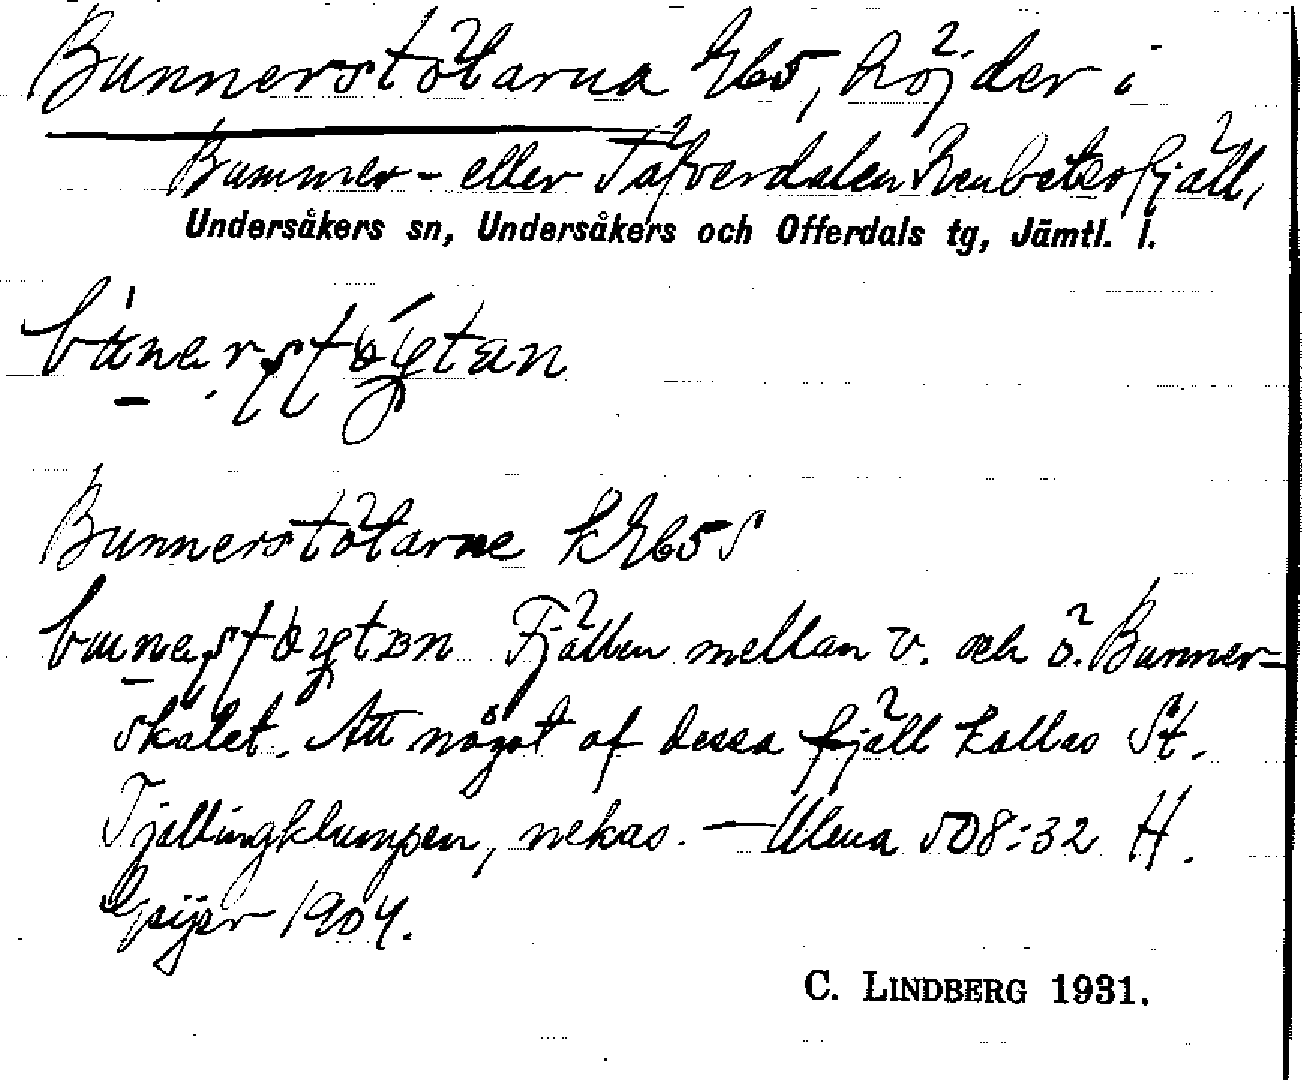 Bunnerstötarna Gb5, höjder i
Bunner- eller Täfverdalen Renbetesfjäll,
Undersåkers sn, Undersåkers och Offerdals tg, Jämtl. l.
Bunnerstötarne kGb5S
Fjällen mellan v. och ö. Bunner-
skalet. Att något af dessa fjäll kallas St.
Tjallingklumpen, nekas. — Ulma 508:32 H.
Geijer 1904.
C. LINDBERG 1931.